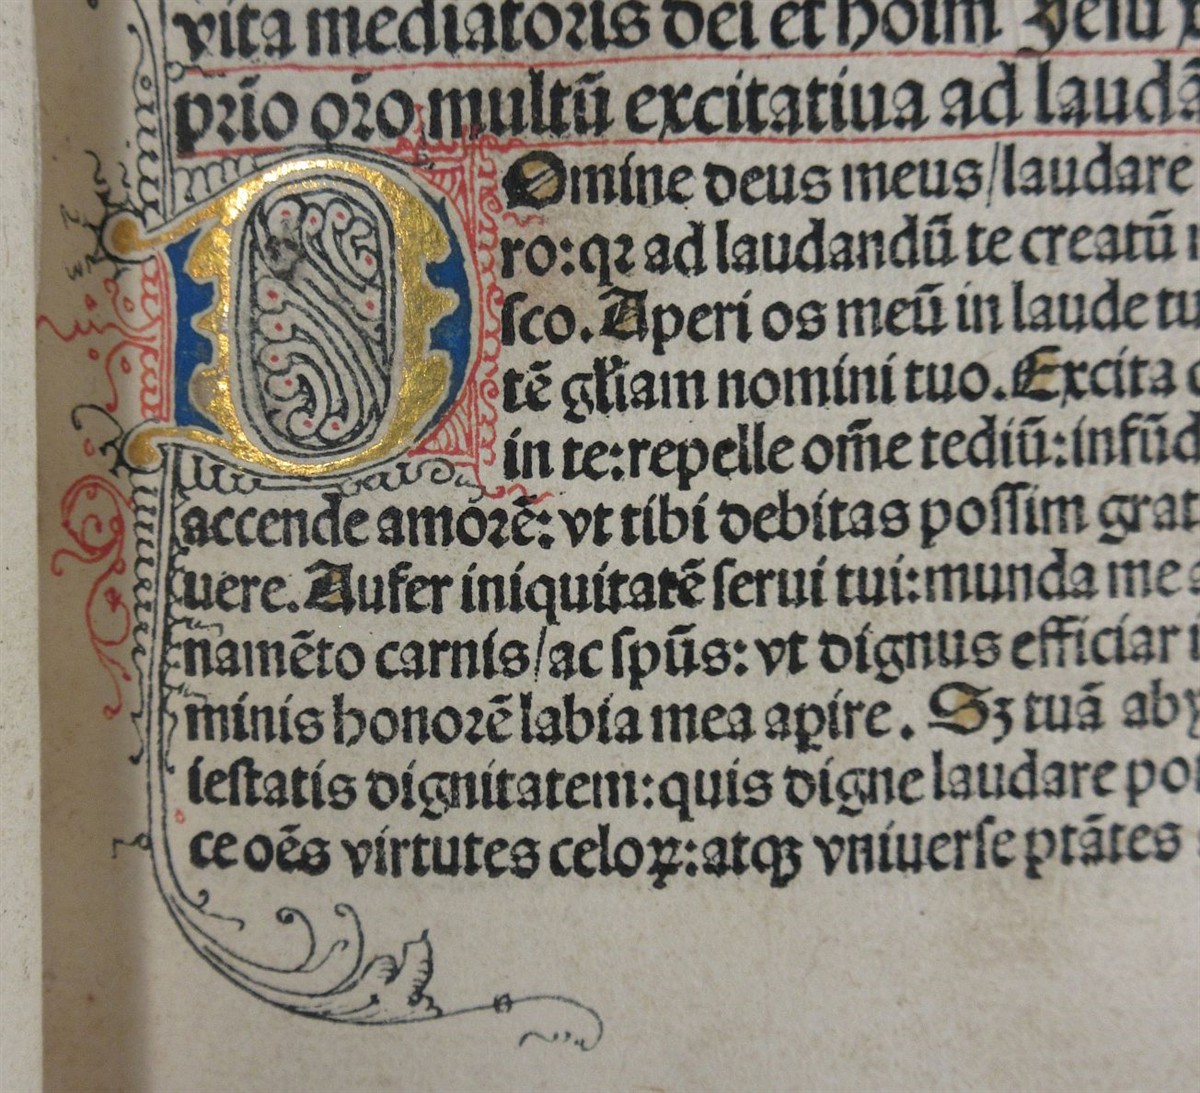 vita mediatoris dei et hoīm Jesu
prīo oro multū excitatiua ad laudā
DOmine deus meus/laudare
ro:qꝛ ad laudandū te creatū
sco. Aperi os meū in laude tu
tē głiam nomini tuo. Excita
in te:repelle om̄e tediū:infūd
accende amorē: vt tibi debitas poſſim grat
uere. Aufer iniquitatē ſerui tui:munda me
namēto carnis/ac ſpūs: vt dignus efficiar
minis honorē labia mea apire. Sꝫ tuā aby
ieſtatis dignitatem:quis digne laudare pot
ce oēs virtutes celoꝝ:atqꝫ vniuerſe ptātes